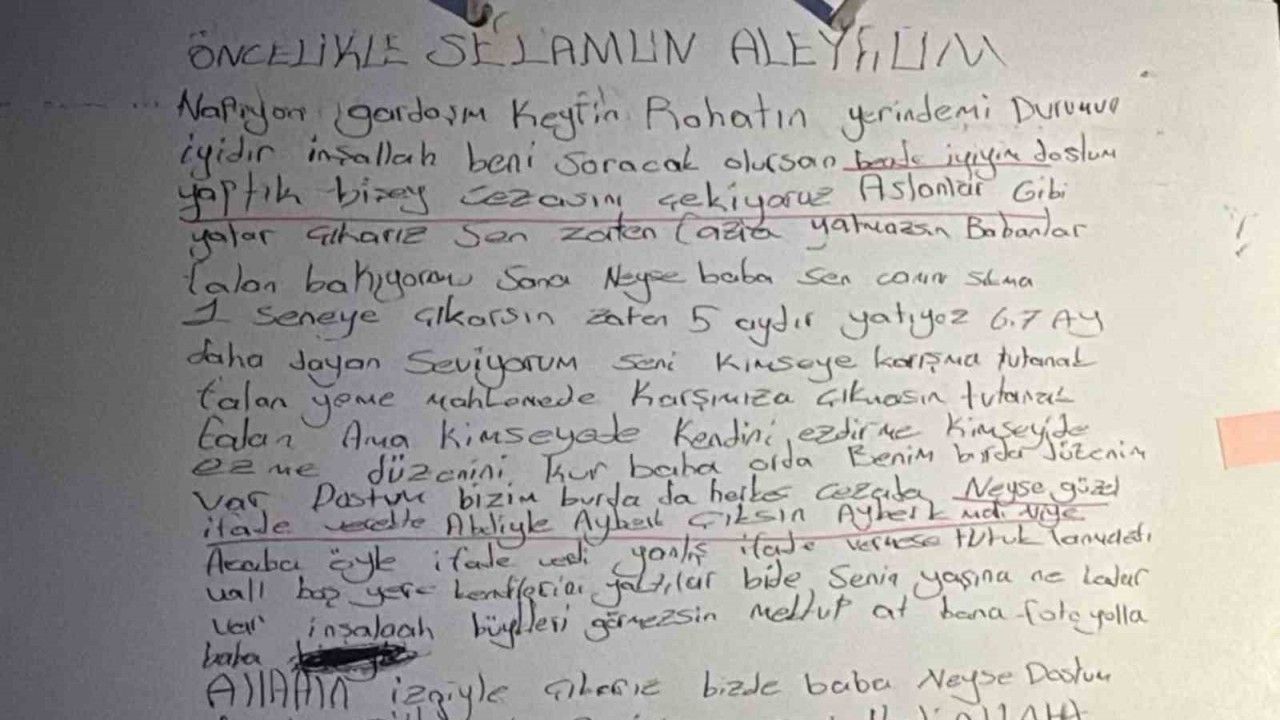 ÖNCELİKLE SELAMUN ALEYKUM
Napıyon gardaşım Keyfin Rahatın yerindemi Durumun
iyidir inşallah beni Soracak olursan bende iyiyim dostum
yaptık bizey cezasını çekiyoruz Aslanlar Gibi
yatar Çıkarız Sen zaten fazla yatmazsın Babanlar
falan bakıyorm Sana Neyse baba Sen canın Sıkma
1 Seneye Çıkarsın Zaten 5 aydır yatıyoz 6.7 AY
daha dayan Seviyorum Seni Kimseye karışma tutanak
falan yeme Mahkemede Karşımıza Çıkmasın tutanak
falan Ama Kimseyede Kendini ezdirme Kimseyide
ezme düzenini kur baba orda Benim burda düzenim
var Dostum bizim burda da herkes cezada Neyse güzel
ifade Abeliyle Ayberk Çıksın Ayberk niye
Acaba öyle ifade verdi yanlış ifade vermese tutuklanmazdı
vall boş yere kendilerini yaktılar bide Senin yaşına ne kadar
var inşalaah büyükleri görmezsin mektup at bana foto yolla
baba
Allahın izniyle Çıkarız bizde baba Neyse Dostum